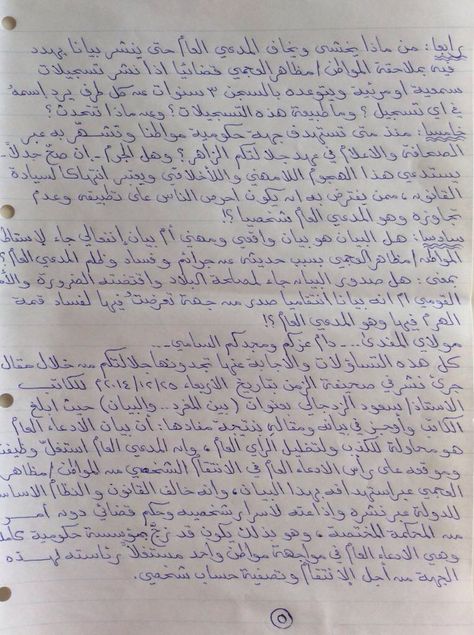 رابعا: من ماذا يخشى ويخاف المدعي العام حتى ينشر بيانا يهدد
فيه بملاحقة المواطن/مظاهر العجمي قضائيا اذا نشر تسجيلات
سمعية او مرئية ويتوعده بالسجن ٣ سنوات عن كل طرف يرد اسمه
في اي تسجيل؟ وما طبيعة هذه التسجيلات؟ وعن ماذا تتحدث؟
خامسا: منذ متى تستهدف جهة حكومية مواطنا وتشهّر به عبر
الصحافة والاعلام في عهد جلالتكم الزاهر؟ وهل الجُرم - إن صحّ جدلاً -
يستدعي هذا الهجوم اللامهني واللاأخلاقي ويعتبر انتهاكا لسيادة
القانون، ممن يفترض به انه يكون احرص الناس على تطبيقه وعدم
تجاوزه وهو المدعي العام شخصيا؟!
سادسا: هل البيان هو بيان واقعي ومهني أم بيان إنفعالي جاء لاستغلال
المواطن/مظاهر العجمي بسبب حديثه عن جرائم وفساد وظلم المدعي العام؟
بمعنى: هل صدور البيان جاء لمصلحة البلاد واقتضته الضرورة
القومي ام انه بيانا انتقاميا صدر من جهة تعرضت فيها لفساد قمة
الهرم فيها وهو المدعي العام؟!
مولاي المفدى... دام عزكم ومجدكم السامي...
كل هذه التساؤلات والاجابة عنها تجدونها جلالتكم من خلال مقال
جرئ نشر في صحيفة الزمن بتاريخ الاربعاء ٢٠١٤/١٢/٢٥ للكاتب
الاستاذ/سعود الزدجالي بعنوان (بين الفرد.. والبيان) حيث ابلغ
الكاتب وأوجز في بيانه ومقاله بنتيجة مفادها: أن بيان الادعاء العام
هو محاولة للكذب ولتضليل الرأي العام، وانه المدعي العام استغلّ وظيفته
وموقعه على رأس الادعاء العام في الانتقام الشخصي من المواطن/مظاهر
العجمي عبر استهدافه بهذا البيان، وانه خالف القانون والنظام الاساسي
للدولة عبر نشره واذاعته لأسرار شخصية وحكم قضائي دون أمر
من المحكمة المختصة، وهو بذلك يكون قد زجّ بمؤسسة حكومية كاملة
وهي الادعاء العام في مواجهة مواطن واحد مستغلاً رئاسته لهذه
الجهة من أجل الإنتقام وتصفية حساب شخصي.
٥